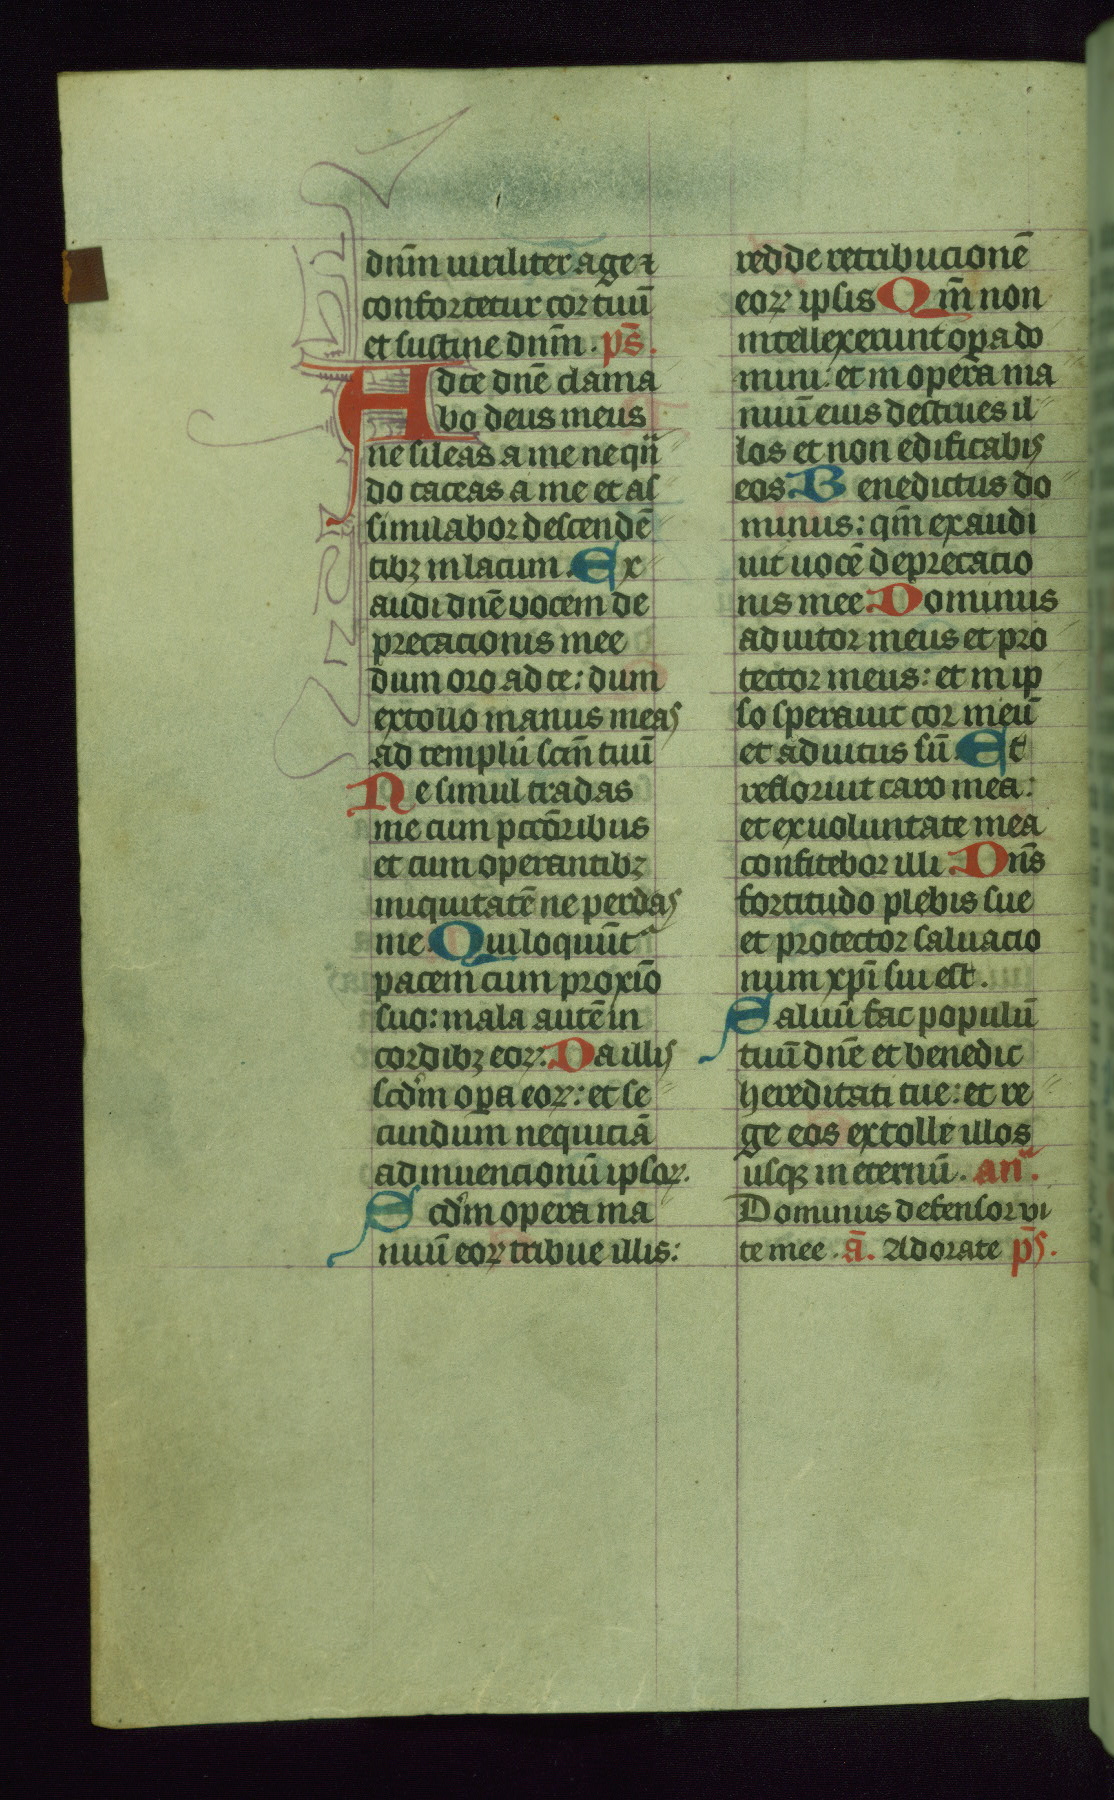 dnm̄ uiriliter age ⁊
confortetur cor tuū
et sustine dnm̄ . ps̄.
Ad te dnē clama
bo deus meus
ne sileas a me ne qn̄
do taceas a me et as
similabor descendē
tibꝫ in lacum . Ex
audi dnē vocem de
precacionis mee
dum oro ad te : dum
extollo manus meas
ad templū scm̄ tuū
Ne simul tradas
me cum pccōribus
et cum operantibꝫ
iniquitatē ne perdas
me . Qui loquūt᷑
pacem cum proxīo
suo : mala autē in
cordibꝫ eoꝝ . Da illis
scdm̄ oꝑa eoꝝ : et se
cundum nequiciā
adinuencionū ipsoꝝ .
Scdm̄ opera ma
nuū eoꝝ tribue illis :
redde retribucionē
eoꝝ ipsis Qm̄ non
intellexerunt oꝑa do
mini : et in opera ma
nuū eius destrues il
los et non edificabis
eos . Benedictus do
minus : qm̄ exaudi
uit uocē deprecacio
nis mee . Dominus
adiutor meus et pro
tector meus : et in ip
so sperauit cor meū
et adiutus sū . Et
refloruit caro mea :
et ex uoluntate mea
confitebor illi . Dn̄s
fortitudo plebis sue
et protector saluacio
num xpī sui est .
Saluū fac populū
tuū dnē et benedic
hereditati tue : et re
ge eos extolle illos
usqꝫ in eternū . an̄ .
Dominus defensor vi
te mee . ā . Adorate ps̄ .